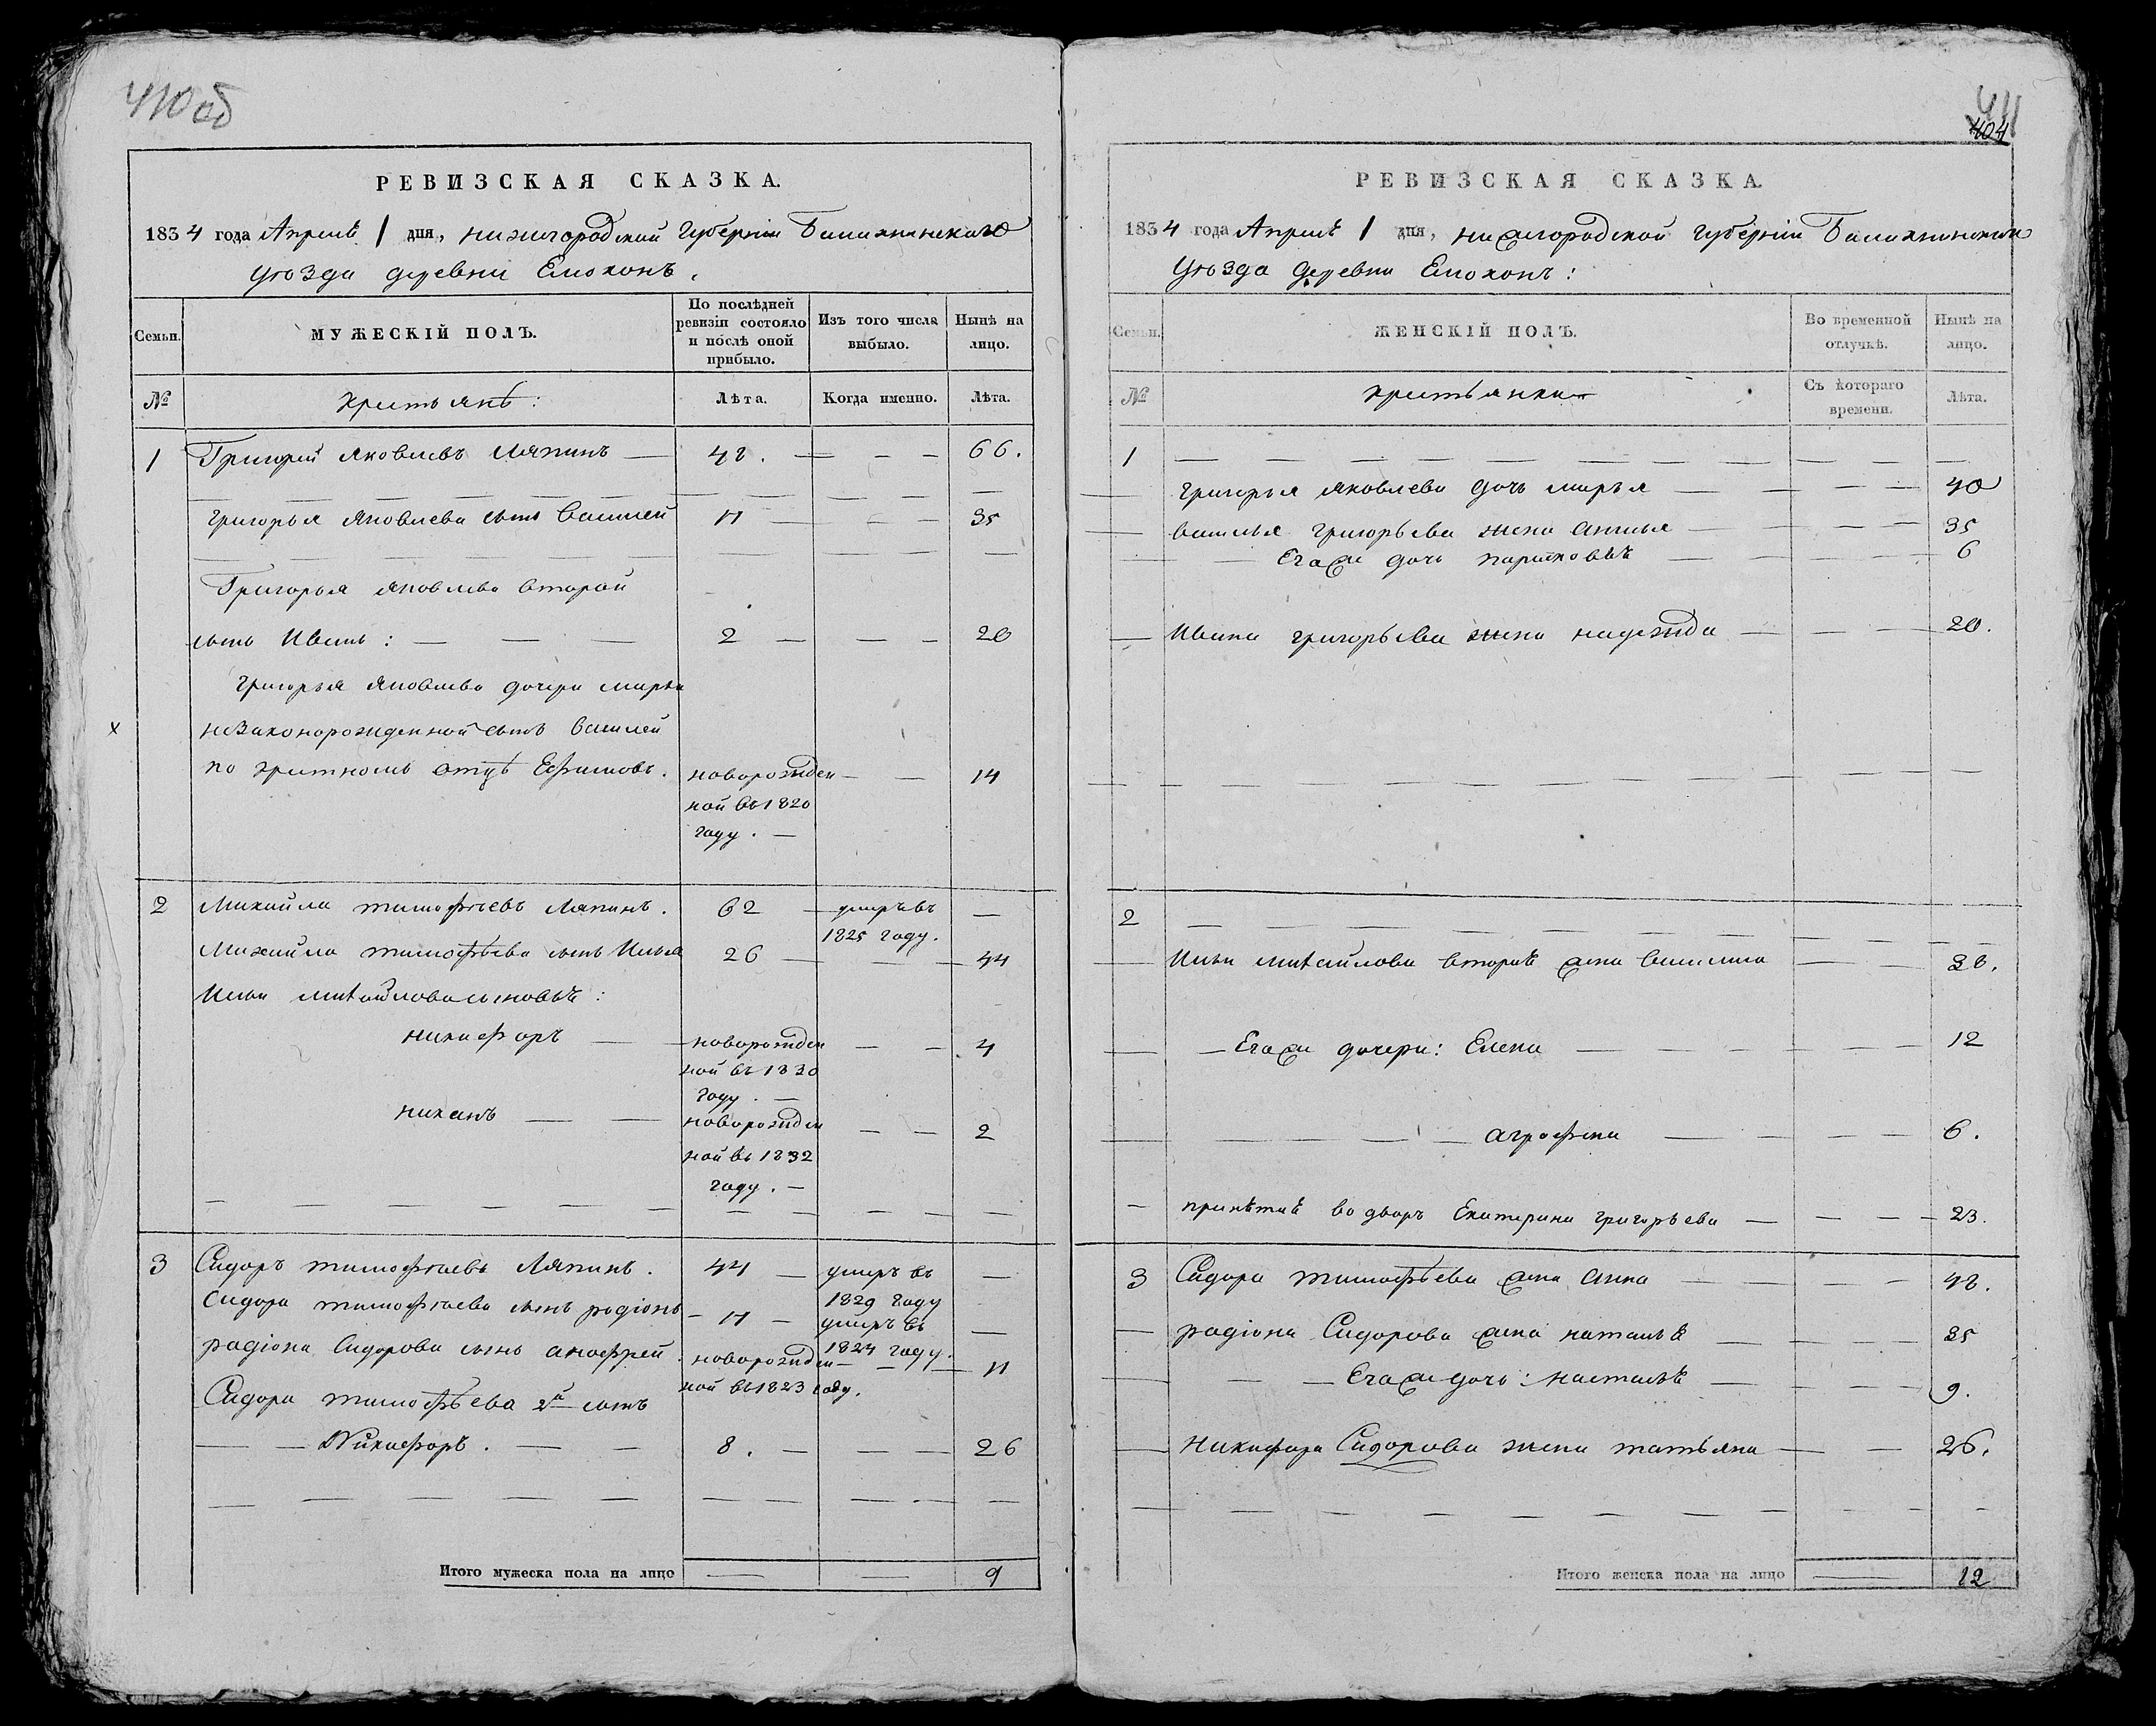 410 об
РЕВИЗСКАЯ СКАЗКА.
1834 года Апреля 1 дня, нижегородской губернии Балахнинскаго
уѣзда деревни Емохонъ.
Семьи.
МУЖЕСКІЙ ПОЛЪ.
По послѣдней ревизіи состояло и послѣ оной прибыло.
Изъ того числа выбыло.
Нынѣ на лицо.
№
крестьянѣ:
Лѣта.
Когда именно.
Лѣта.
1 Григорей яковлевъ Ляпинъ 48. 66.
григорья яковлева сынъ Василей 17 35
Григорья яковлева второй
сынъ Иванъ: 2 20
григорья яковлева дочери марьи
незаконорожденной сынъ Василей
по крестномъ отцѣ Ефимовъ. новорожден 14
ной въ 1820
году.
2 Михайла тимофѣевъ Ляпинъ. 62 умръ въ
1825 году.
Михайла тимофѣева сынъ Илья 26 44
Ильи михайлова сыновья:
никифоръ новорожден 4
ной въ 1830
году.
никанъ новорожден 2
ной въ 1832
году.
3 Сидоръ тимофѣевъ Ляпинъ. 44 умеръ въ
1829 году
Сидора тимофѣева сынъ радіонъ 17 умеръ въ
1824 году.
радіона Сидорова сынъ анофрей. новорожден 11
ной въ 1823 году.
Сидора тимофѣева 2й сынъ
Никифоръ. 8. 26
Итого мужеска пола на лицо 9
411
404
РЕВИЗСКАЯ СКАЗКА.
1834 года Апреля 1 дня, нижегородской губерніи Балахнинскаго
уѣзда деревни Емохонъ:
Семьи.
ЖЕНСКІЙ ПОЛЪ.
Во временной отлучкѣ.
Нынѣ на лицо.
№
крестьянки
Съ котораго времени.
Лѣта.
1
григорья яковлева дочь марья 40
василья григорьева жена анисья 35
Егоже дочь парасковья 6
Ивана григорьева жена надежда 20.
2
Ильи михайлова вторая жена василиса 38.
Егоже дочери: Елена 12
аграфена 6.
принятая во дворъ Екатерина григорьева 23.
3 Сидора тимофѣева жена анна 48.
радіона Сидорова жена наталья 35
Егоже дочь: настасья 9.
никифора Сидорова жена татьяна 26.
Итого женска пола на лицо 12